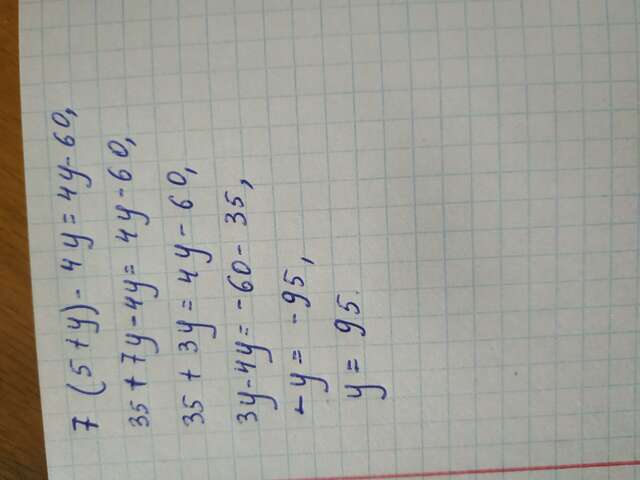 7 (5+y) - 4y = 4y - 60,
35 + 7y - 4y = 4y - 60,
35 + 3y = 4y - 60,
3y - 4y = -60 - 35,
-y = -95,
y = 95.